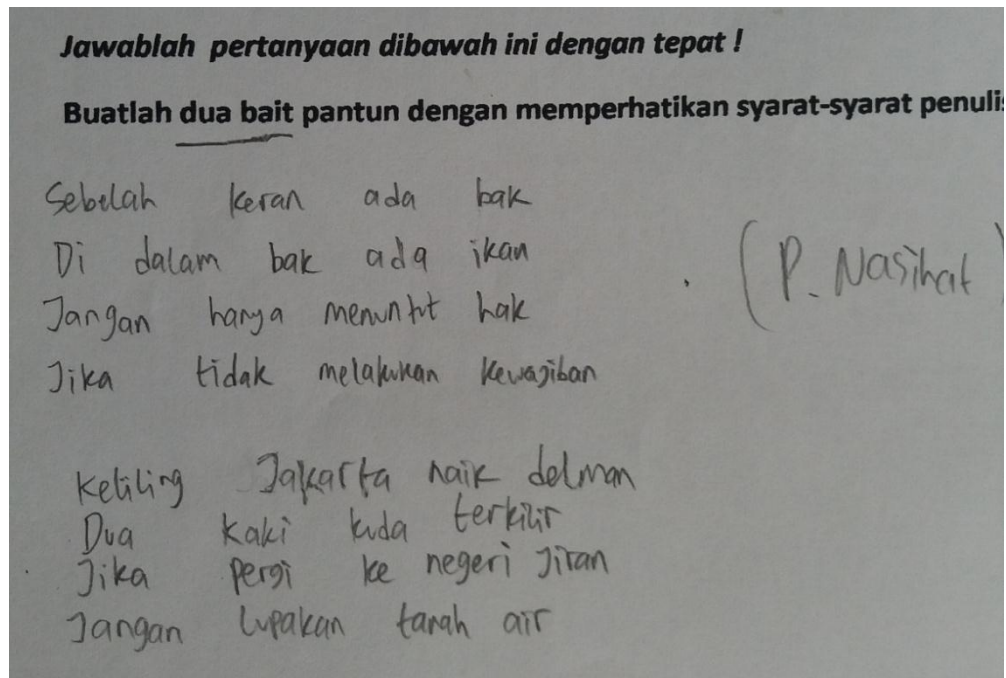 Jawablah pertanyaan dibawah ini dengan tepat !
Buatlah dua bait pantun dengan memperhatikan syarat-syarat penulis
Sebelah keran ada bak
Di dalam bak ada ikan
Jangan hanya menuntut hak
Jika tidak melakukan kewajiban
(P. Nasihat)
Keliling Jakarta naik delman
Dua kaki kuda terkilir
Jika pergi ke negeri Jiran
Jangan lupakan tanah air